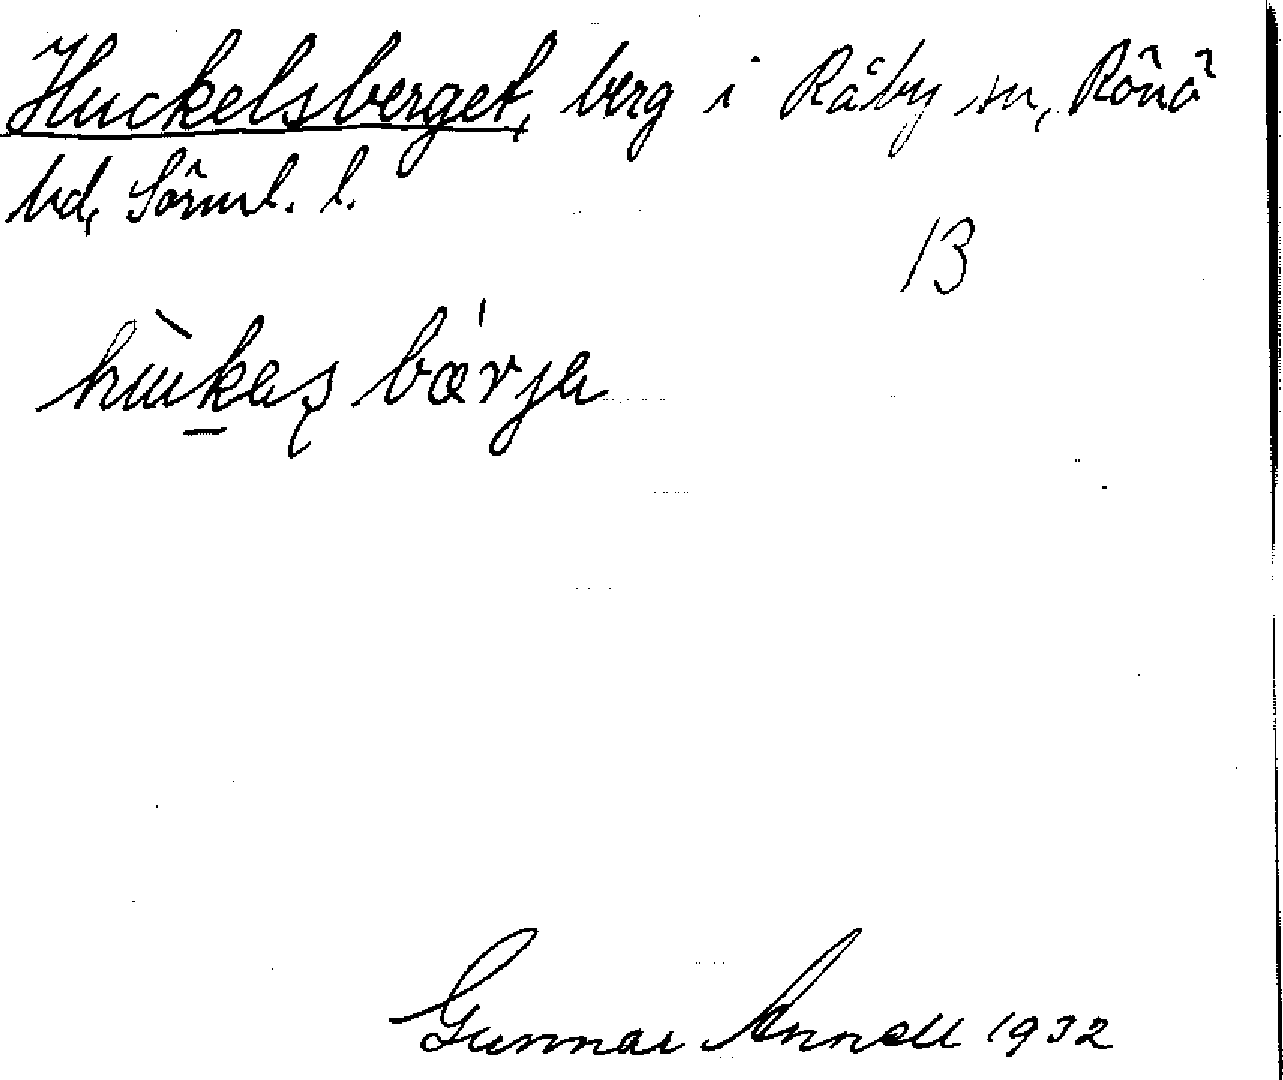 Huckelsberget, berg i Råby sn, Rönö
hd, Sörml. l.
13
hùkas̩ bǽrja
Gunnar Annell 1932